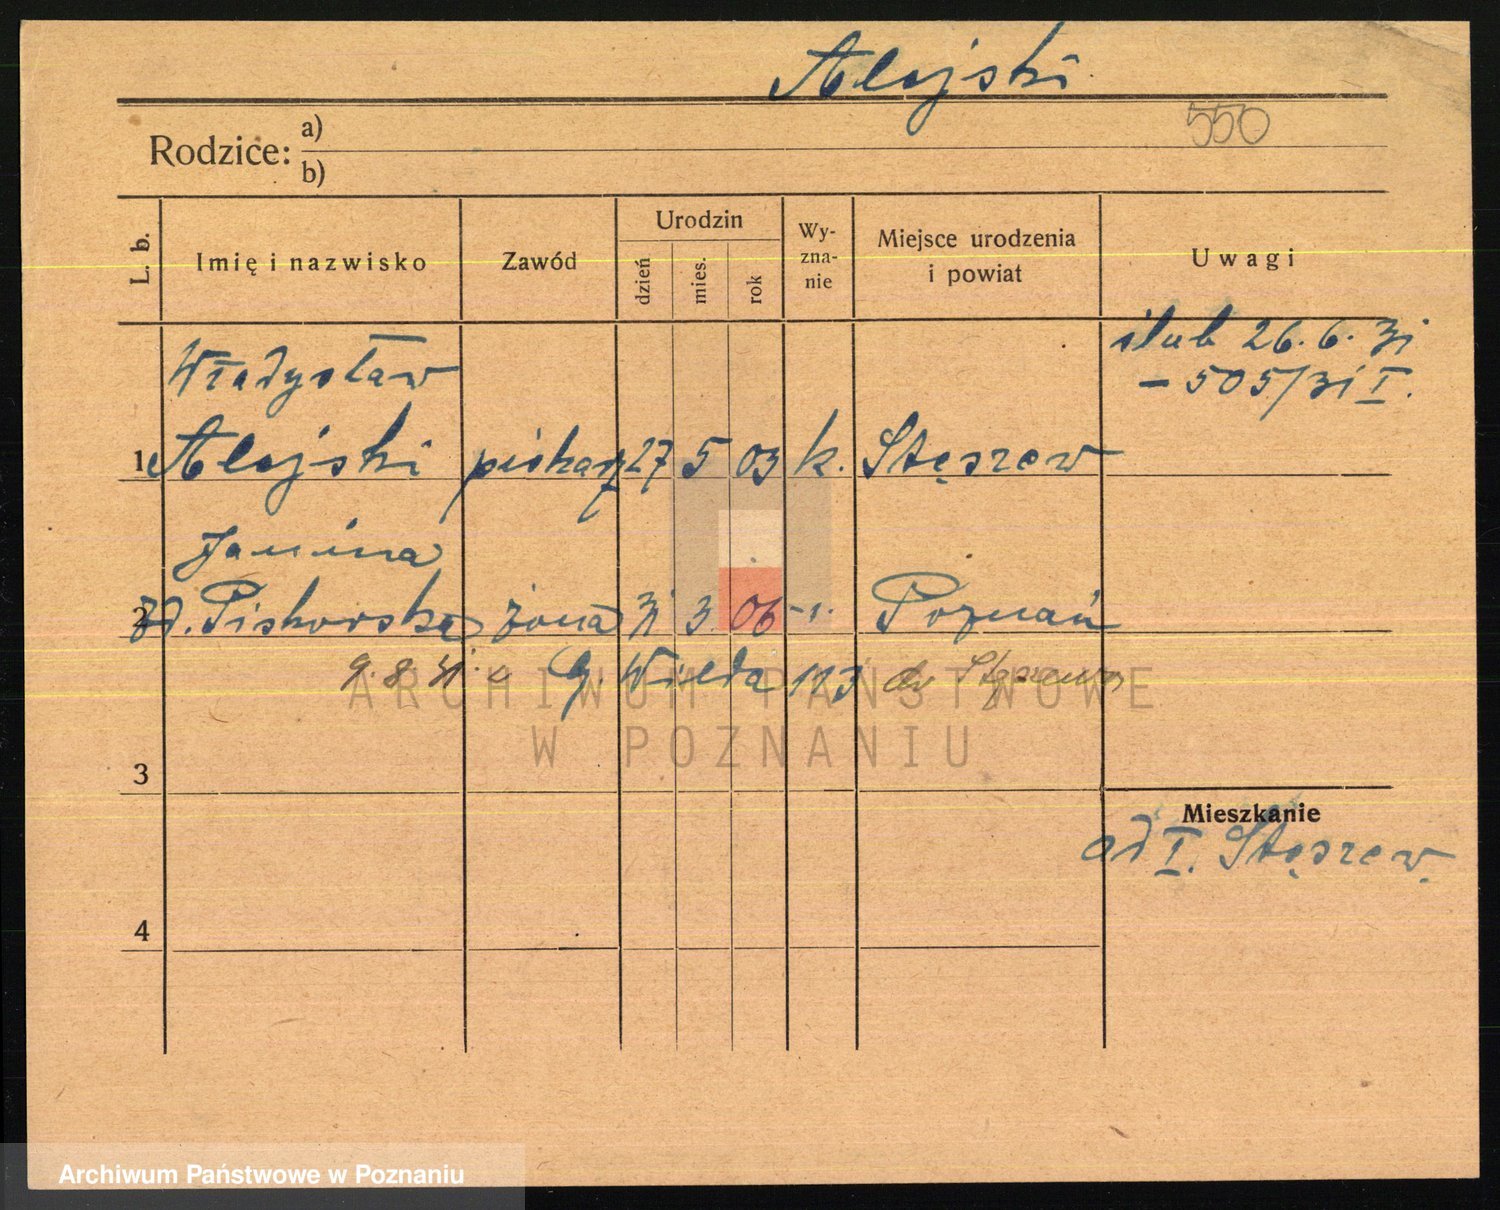 Alejski
550
Rodzice: a)
b)
L. b. Imię i nazwisko Zawód Urodzin dzień mies. rok Wy-zna-nie Miejsce urodzenia i powiat Uwagi
ślub 26. 6. 31
- 505/31 I.
Władysław
1 Alejski piekarz 27 5 03 k. Stęszew
Janina
2 zd. Piskorska żona 31 3 06 -„- Poznań
9. 8. 31 G. Wilda 113 do Stęszewa
3
Mieszkanie
od I. Stęszew.
4
ARCHIWUM PAŃSTWOWE
W POZNANIU
Archiwum Państwowe w Poznaniu